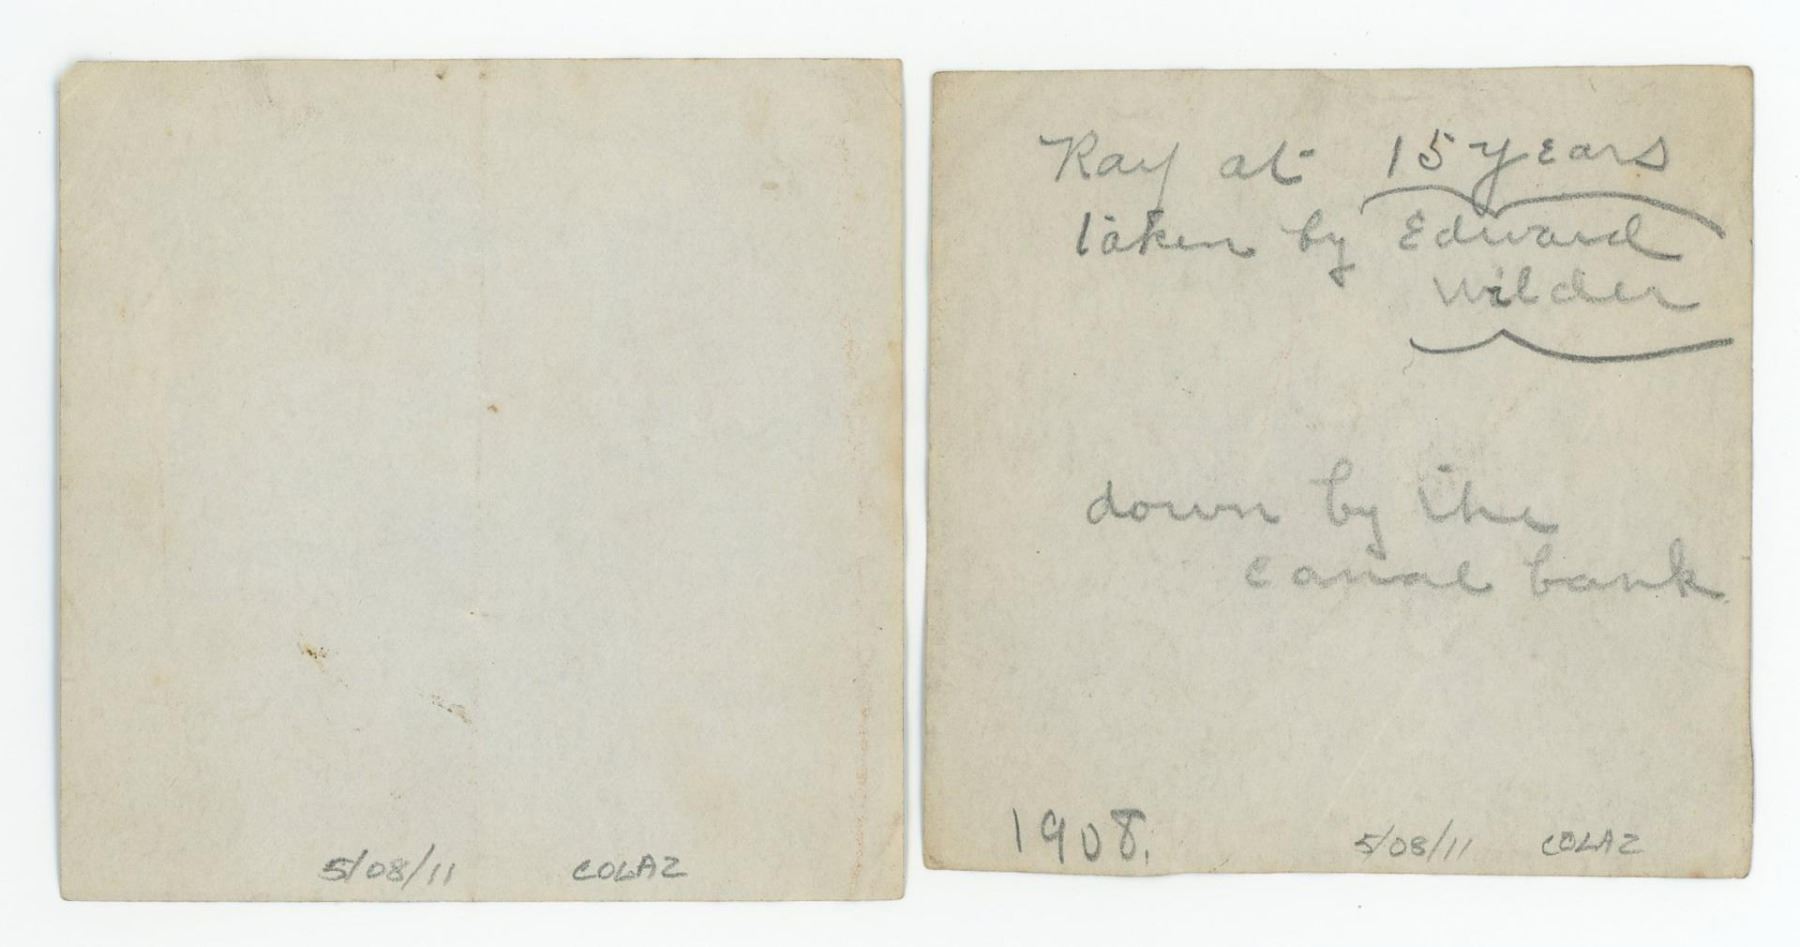 5/08/11 COLAZ
Ray at 15 years
taken by Edward
Wilder
down by the
canal bank
1908.
5/08/11 COLAZ